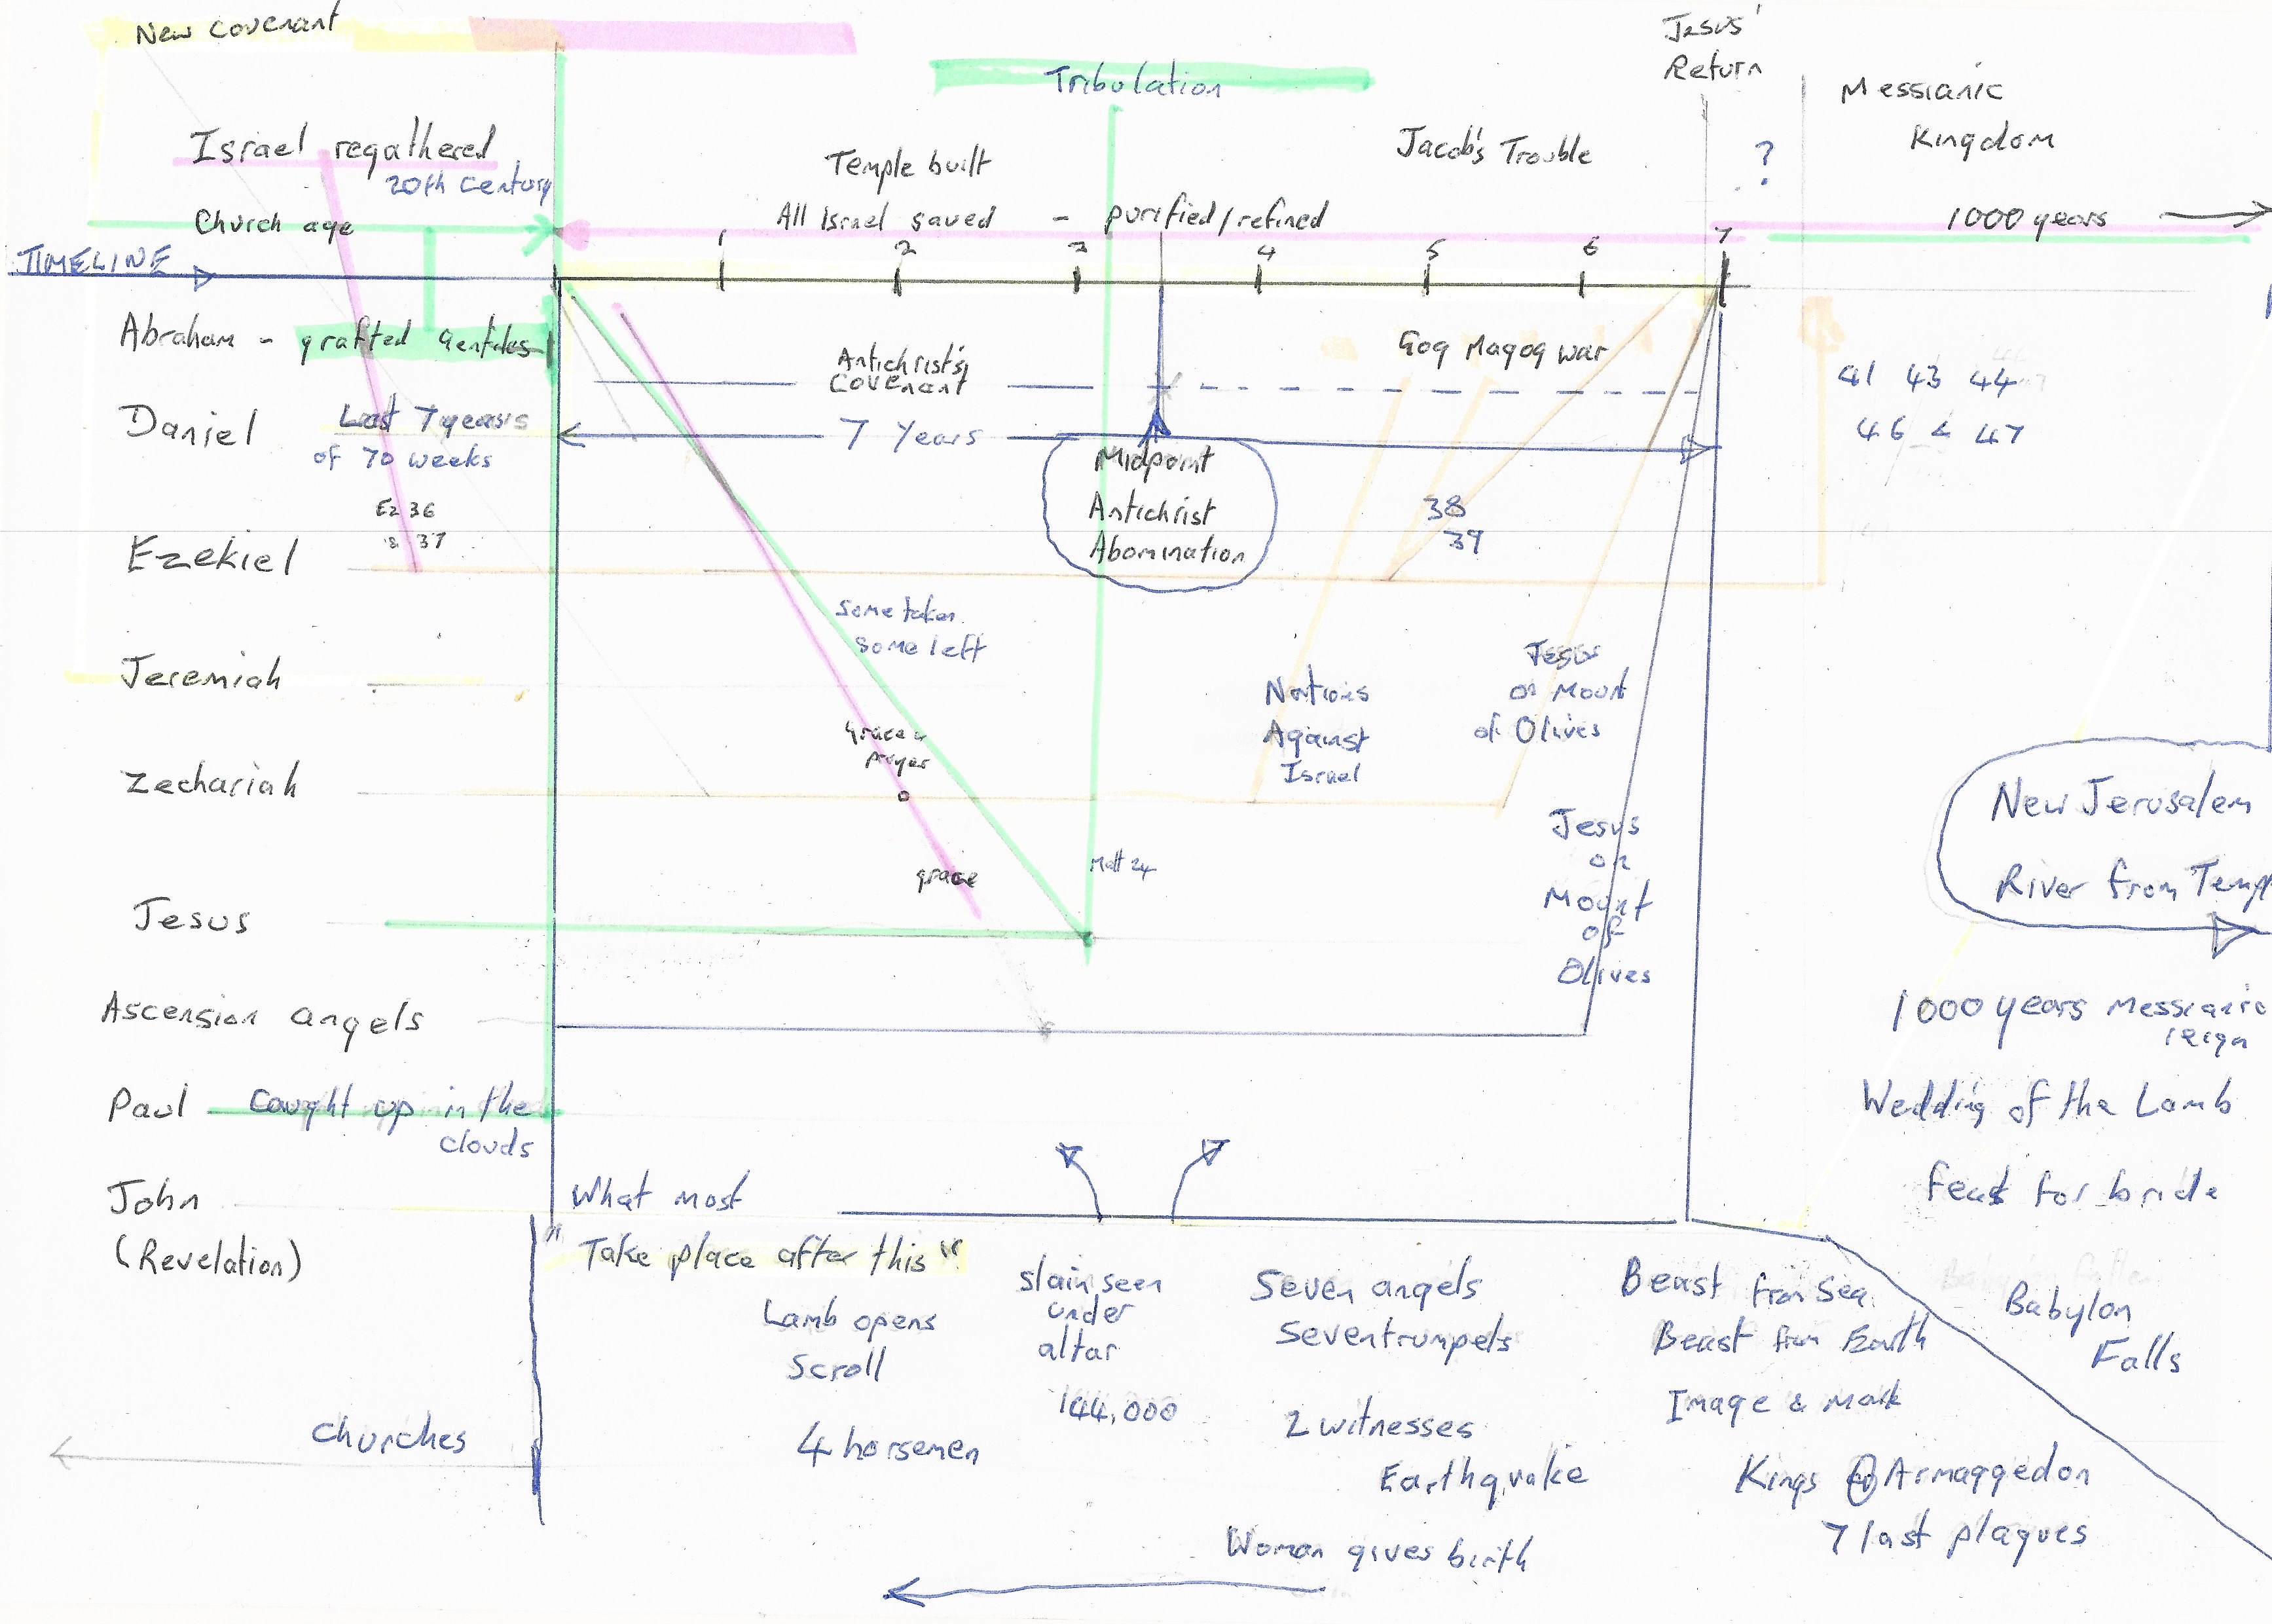 New Covenant
Jesus'
Return
Tribulation
Messianic
Kingdom
Israel regathered
20th Century
Temple built
Jacob's Trouble
?
Church age
All Israel saved - purified/refined
1000 years
TIMELINE
1 2 3 4 5 6 7
Abraham - grafted Gentiles
Antichrist's
Covenant
Gog Magog war
41 43 44
46 & 47
Daniel
Last 7 years
of 70 weeks
7 Years
Midpoint
Antichrist
Abomination
Ez 36
& 37
38
39
Ezekiel
some taken
some left
Jeremiah
Nations
Against
Israel
Jesus
on Mount
of Olives
Grace &
prayer
Zechariah
New Jerusalem
River from Temp
Jesus
on
Mount
of
Olives
grace
Matt 24
Jesus
Ascension angels
1000 years Messianic
reign
Paul
caught up in the
clouds
Wedding of the Lamb
feast for bride
John
(Revelation)
What most
"Take place after this"
Lamb opens
Scroll
4 horsemen
slain seen
under
altar
144,000
Seven angels
Seven trumpets
2 witnesses
Earthquake
Beast from Sea
Beast from Earth
Image & Mark
Kings @ Armaggedon
7 last plagues
Babylon
Falls
Churches
Woman gives birth